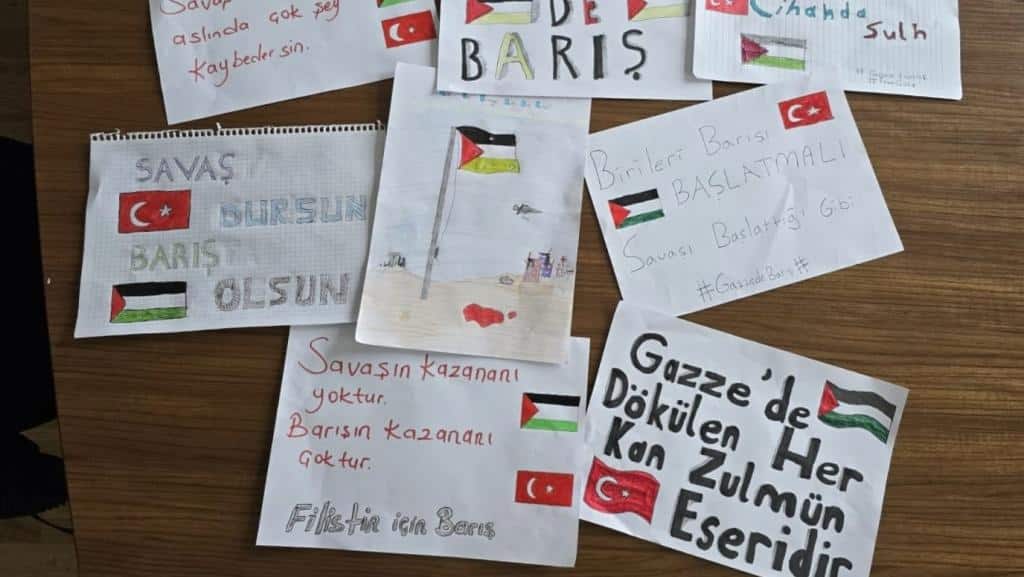 Savaş
aslında çok şey
kaybedersin.
DE
BARIŞ
Cihanda
Sulh
SAVAŞ
DURSUN
BARIŞ
OLSUN
Birileri Barışı
BAŞLATMALI
Savaşı Başlattığı Gibi
#GazzedeBarış#
Savaşın kazananı
yoktur.
Barışın kazananı
çoktur.
Filistin için Barış
Gazze'de
Dökülen Her
Kan Zulmün
Eseridir